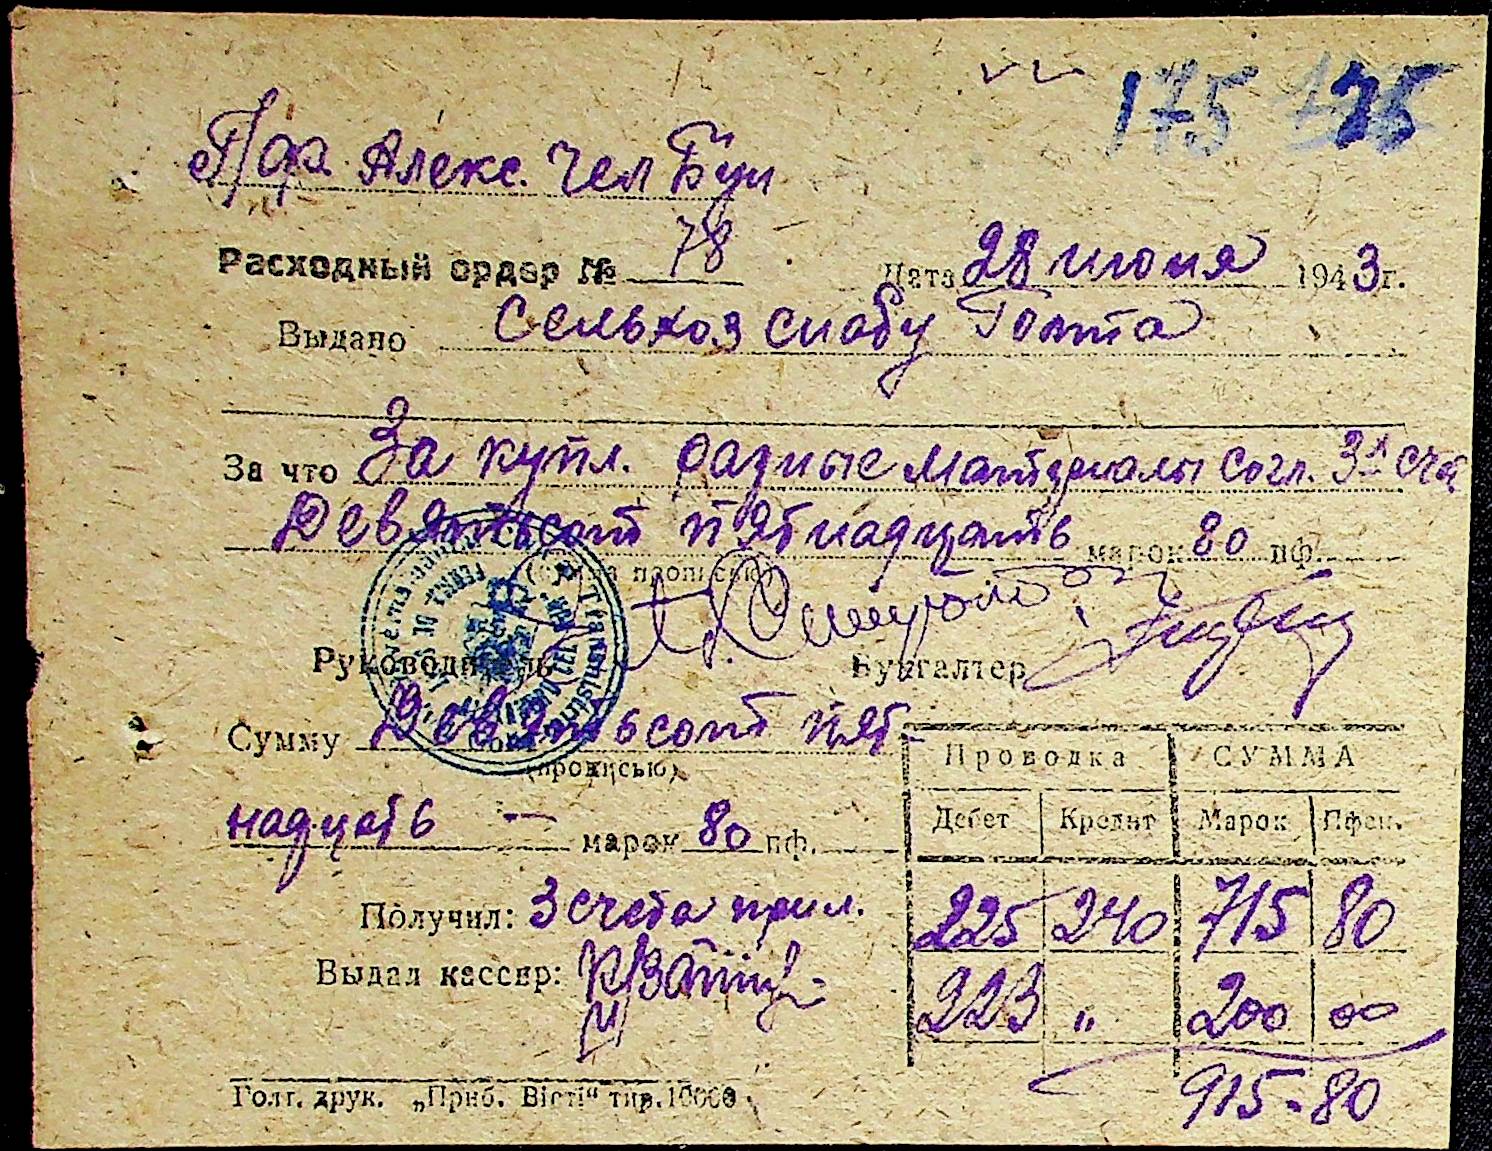 175 175
Алекс. Чел Бун
Расходный ордер № 78 Дата 28 июня 1943 г.
Выдано Сельхоз снабу Голта
За что За купл. разные материалы согл. 3х счет
Девятьсот пятнадцать марок 80 пф.
(сумма прописью)
Руководитель Бухгалтер
Сумму Девятьсот пят-
(прописью)
надцать — марок 80 пф.
Проводка СУММА
Дебет Кредит Марок Пфен.
Получил: 3 счета прил.
225 240 715 80
Выдал кассир:
223 " 200 00
915-80
Голт. друк. „Приб. Вісті“ тир. 10000